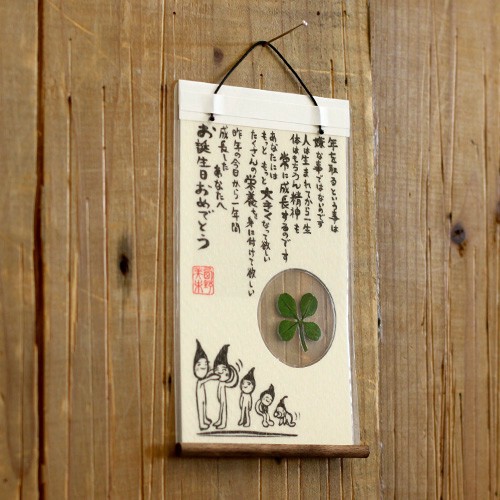 年を取るという事は
嫌な事ではないのです
人は生まれてから一生
体はもちろん精神も
常に成長するのです
あなたには
もっともっと大きくなって欲しい
たくさんの栄養を身に付けて欲しい
昨年の今日から一年間
成長した
あなたへ
お誕生日おめでとう